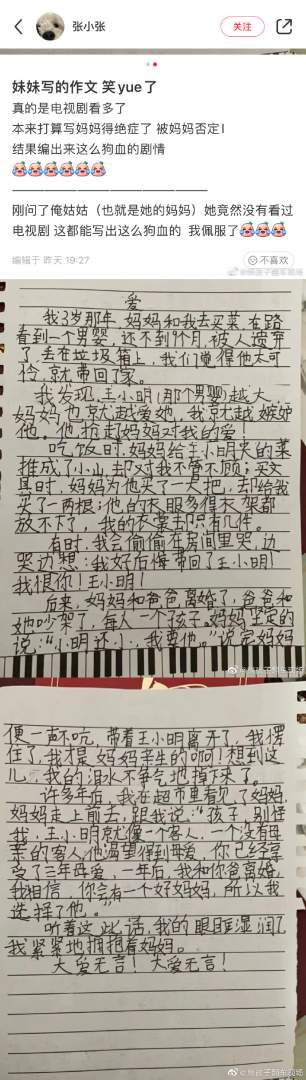 张小张
关注
妹妹写的作文 笑yue了
真的是电视剧看多了
本来打算写妈妈得绝症了 被妈妈否定!
结果编出来这么狗血的剧情
——————————————
刚问了俺姑姑（也就是她的妈妈）她竟然没有看过
电视剧 这都能写出这么狗血的 我佩服了
编辑于 昨天 19:27
不喜欢
@熊孩子翻车现场
爱
我3岁那年，妈妈和我去买菜，在路
看到一个男婴，还不到9个月，被人遗弃
了，丢在垃圾箱上，我们觉得他太可
怜，就带回了家。
我发现，王小明(那个男婴)越大，
妈妈也就越爱她，我就越嫉妒
他。他抢起妈妈对我的爱！
吃饭时，妈妈给王小明夹的菜
推成了小山，却对我不管不顾；买文
具时，妈妈为他买了一大把，却给我
买了一两根；他的衣服多得衣架都
放不下了，我的衣裳却只有几件。
有时，我会偷偷在房间里哭，边
哭边想：我好后悔带回了王小明！
我恨你！王小明！
后来，妈妈和爸爸离婚了，爸爸和
她吵架了，每人一个孩子。妈妈坚定的
说：“小明还小，我要他。”说完妈妈
@熊孩子翻车现场
便一声不吭，带着王小明离开了，我愣
住了，我才是妈妈亲生的啊！想到这
儿，我的泪水不争气地掉下来了。
许多年后，我在超市里看见了妈妈，
妈妈走上前去，跟我说：“孩子，别怪
我，王小明就像一个客人，一个没有母
亲的客人，他渴望得到母爱，你已经享
受了三年母爱，一年后，我和你爸离婚，
我相信，你会有一个好妈妈，所以我
选择了他。”
听着这些话，我的眼眶湿润了，
我紧紧地拥抱着妈妈。
大爱无言！大爱无言！
@熊孩子翻车现场